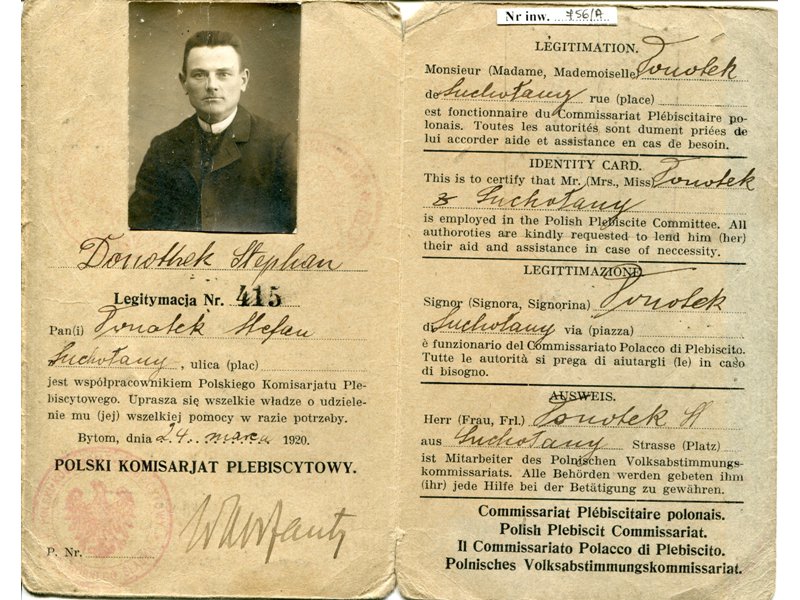 Donothek Stephan
Legitymacja Nr. 415
Pan(i) Donatek Stefan
Suchołany, ulica (plac)
jest współpracownikiem Polskiego Komisarjatu Ple-
biscytowego. Uprasza się wszelkie władze o udziele-
nie mu (jej) wszelkiej pomocy w razie potrzeby.
Bytom, dnia 24. marca 1920.
POLSKI KOMISARJAT PLEBISCYTOWY.
P. Nr.
Nr inw. 756/A
LEGITIMATION.
Monsieur (Madame, Mademoiselle) Donotek
de Suchołany rue (place)
est fonctionnaire du Commissariat Plébiscitaire po-
lonais. Toutes les autorités sont dument priées de
lui accorder aide et assistance en cas de besoin.
IDENTITY CARD.
This is to certify that Mr. (Mrs., Miss) Donotek
z Suchołany
is employed in the Polish Plebiscite Committee. All
authoroties are kindly requested to lend him (her)
their aid and assistance in case of neccessity.
LEGITTIMAZIONE
Signor (Signora, Signorina) Donotek
di Suchołany via (piazza)
è funzionario del Commissariato Polacco di Plebiscito.
Tutte le autorità si prega di aiutargli (le) in caso
di bisogno.
AUSWEIS.
Herr (Frau, Frl.) Donotek St
aus Suchołany Strasse (Platz)
ist Mitarbeiter des Polnischen Volksabstimmungs-
kommissariats. Alle Behörden werden gebeten ihm
(ihr) jede Hilfe bei der Betätigung zu gewähren.
Commissariat Plébiscitaire polonais.
Polish Plebiscit Commissariat.
Il Commissariato Polacco di Plebiscito.
Polnisches Volksabstimmungskommissariat.